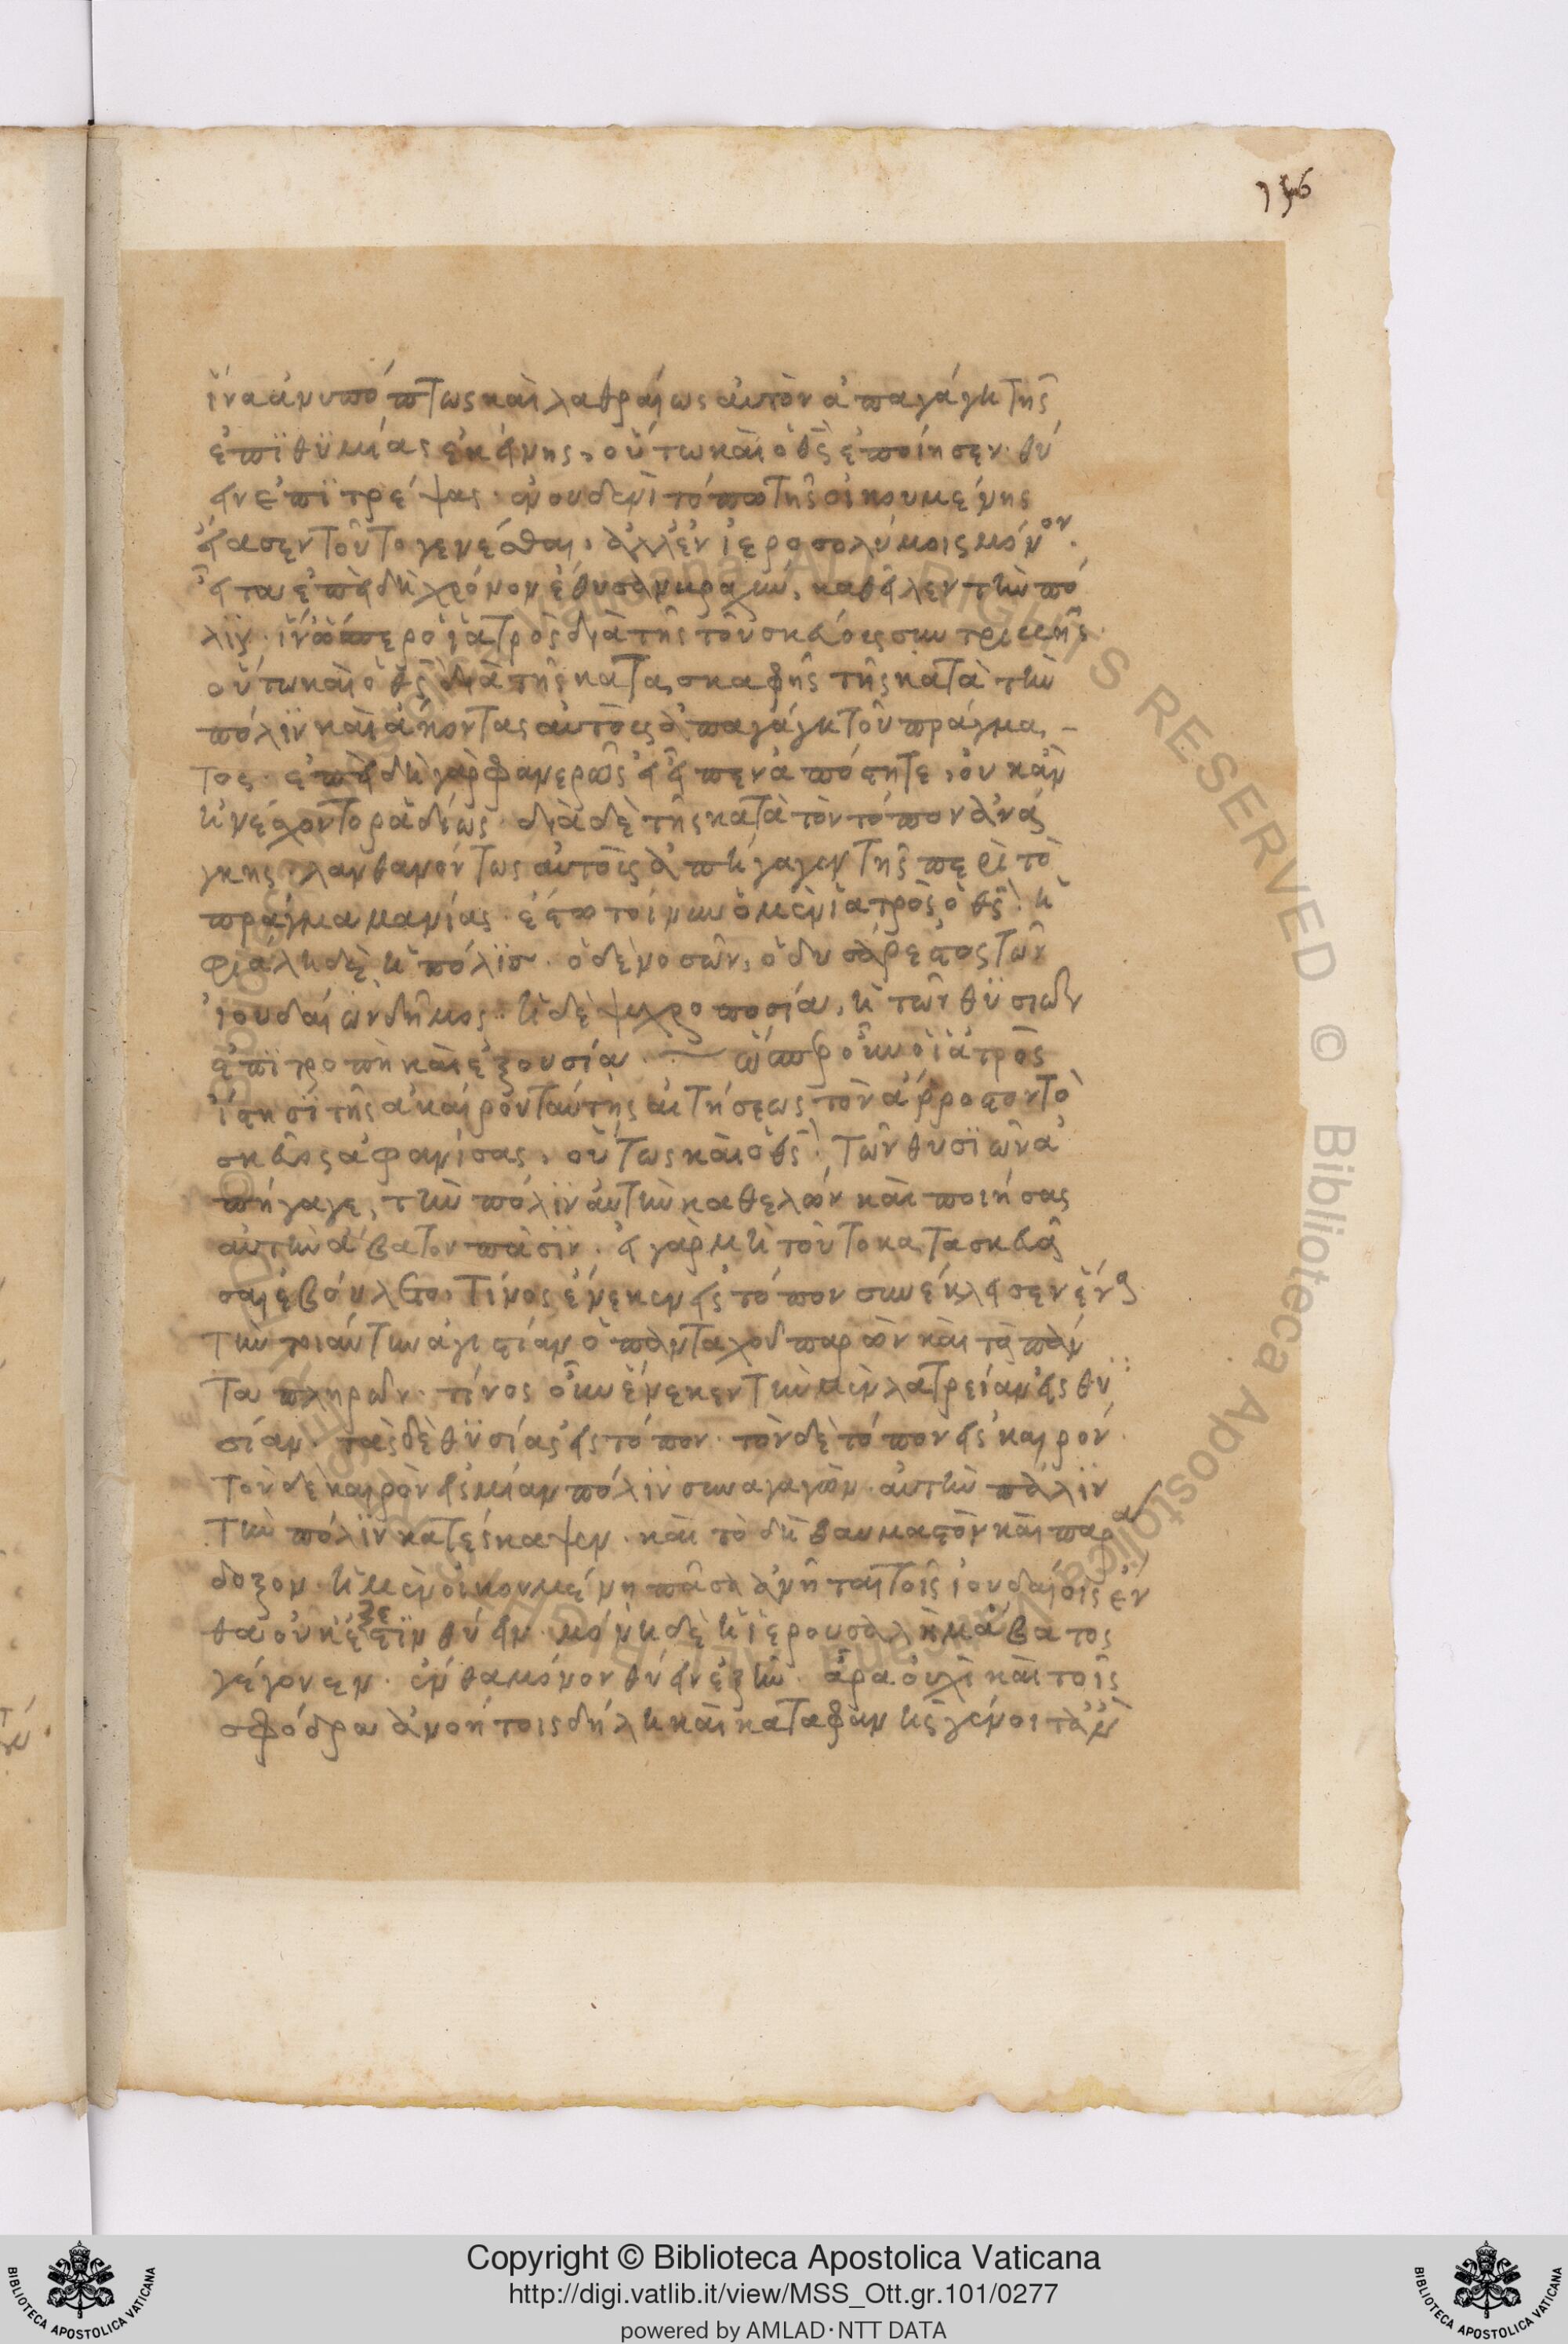 156
ἵνα ἀνυπόπτως καὶ λαθραίως αὐτὸν ἀπαγάγη τῆς
ἐπϊθϋμίας ἐκείνης, οὕτω καὶ ὁ θς ἐποίησεν· θύ
ειν ἐπϊτρέψας· ἐν οὐδενὶ τόπω τῆς οἰκουμένης
εἴασεν τοῦτο γενέσθαι, ἀλλ' ἐν ἱεροσολύμοις μόνον.
εἶτα ἐπειδὴ χρόνον ἔθυσαν βραχὺν, καθεῖλεν τὴν πό
λϊν· ἵν' ὥσπερ ὁ ἰατρὸς διὰ τῆς τοῦ σκεύους συντριβῆς·
οὕτω καὶ ὁ θς διὰ τῆς κατασκαφῆς τῆς κατὰ τὴν
πόλϊν καὶ ἄκοντας αὐτοὺς ἀπαγάγη τοῦ πράγμα-
τος· ἐπειδὴ γὰρ φανερῶς εἰ εἶπεν ἀπόστητε, οὐκ ἂν
ἠνέσχοντο ραδίως· διὰ δὲ τῆς κατὰ τὸν τόπον ἀνάγ
κης λανθανόντως αὐτοὺς ἀπήγαγεν τῆς περὶ τὸ
πράγμα μανίας· ἔστω τοίνυν ὁ μὲν ἰατρὸς ὁ θς· ἡ
φιάλη δὲ ἡ πόλϊς· ὁ δὲ νοσῶν, ὁ δυσάρεστος τῶν
ἰουδαίων δῆμος· ἡ δὲ ψυχροποσία, ἡ τῶν θϋσιῶν
ἐπϊτροπὴ καὶ ἐξουσία· ὥσπερ οὖν ὁ ἰατρὸς
ἵστησϊ τῆς ἀκαίρου ταύτης αἰτήσεως τὸν ἄρρωστον τὸ
σκεῦος ἀφανίσας, οὕτως καὶ ὁ θς· τῶν θυσϊῶν ἀ
πήγαγε, τὴν πόλϊν αὐτὴν καθελὼν καὶ ποιήσας
αὐτὴν ἄβατον πᾶσϊν· εἰ γὰρ μὴ τοῦτο κατασκευά
σαι ἐβούλετο, τίνος ἕνεκεν εἰς τόπον συνέκλεισεν ἕνα
τὴν τοιαύτην ἁγιστίαν ὁ πανταχοῦ παρὼν καὶ τὰ πάν
τα πληρῶν· τίνος οὖν ἕνεκεν τὴν μὲν λατρείαν εἰς θϋ
σίαν· τὰς δὲ θϋσίας εἰς τόπον· τὸν δὲ τόπον εἰς καιρόν·
τὸν δὲ καιρὸν εἰς μίαν πόλϊν συναγαγὼν· αὐτὴν πάλϊν
τὴν πόλϊν κατέσκαψεν· καὶ τὸ δὴ θαυμαστὸν καὶ παρά
δοξον· ἡ μὲν οἰκουμένη πᾶσα ἀνεῖται τοῖς ἰουδαίοις ἔν
θα οὐκ ἔξεστϊν θύειν· μόνη δὲ ἡ ἱερουσαλὴμ ἄβατος
γέγονεν· ἔνθα μόνον θύειν ἐξῆν· ἆρα οὐχὶ καὶ τοῖς
σφόδρα ἀνοήτοις δήλη καὶ καταφανὴς γένοιτ' ἂν
Copyright © Biblioteca Apostolica Vaticana
http://digi.vatlib.it/view/MSS_Ott.gr.101/0277
powered by AMLAD·NTT DATA